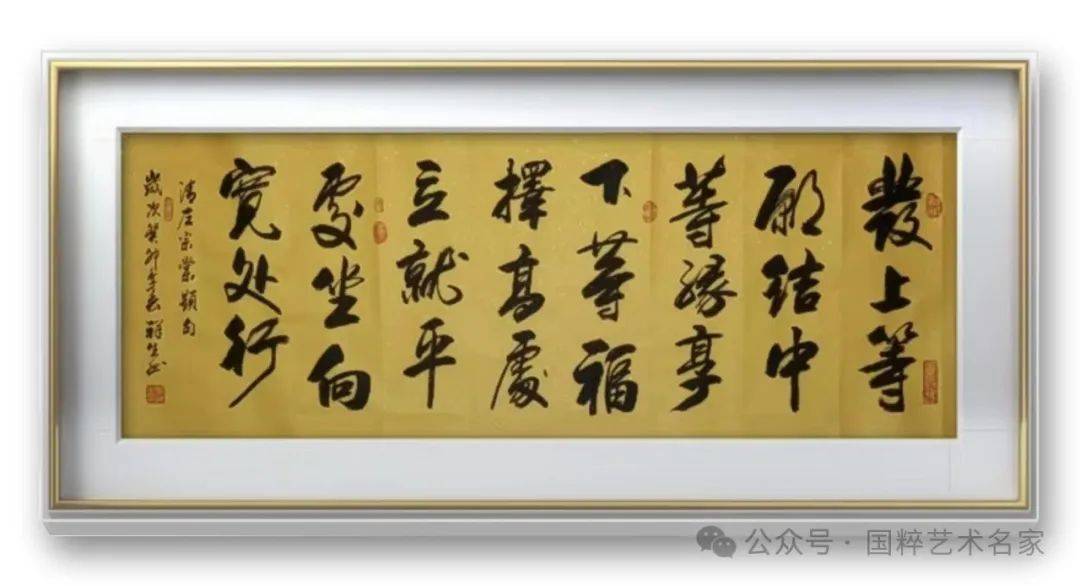 發上等
願結中
等緣享
下等福
擇高處
立就平
處坐向
寬处行
清左宗棠題句
歲次癸卯年春
公众号 · 国粹艺术名家